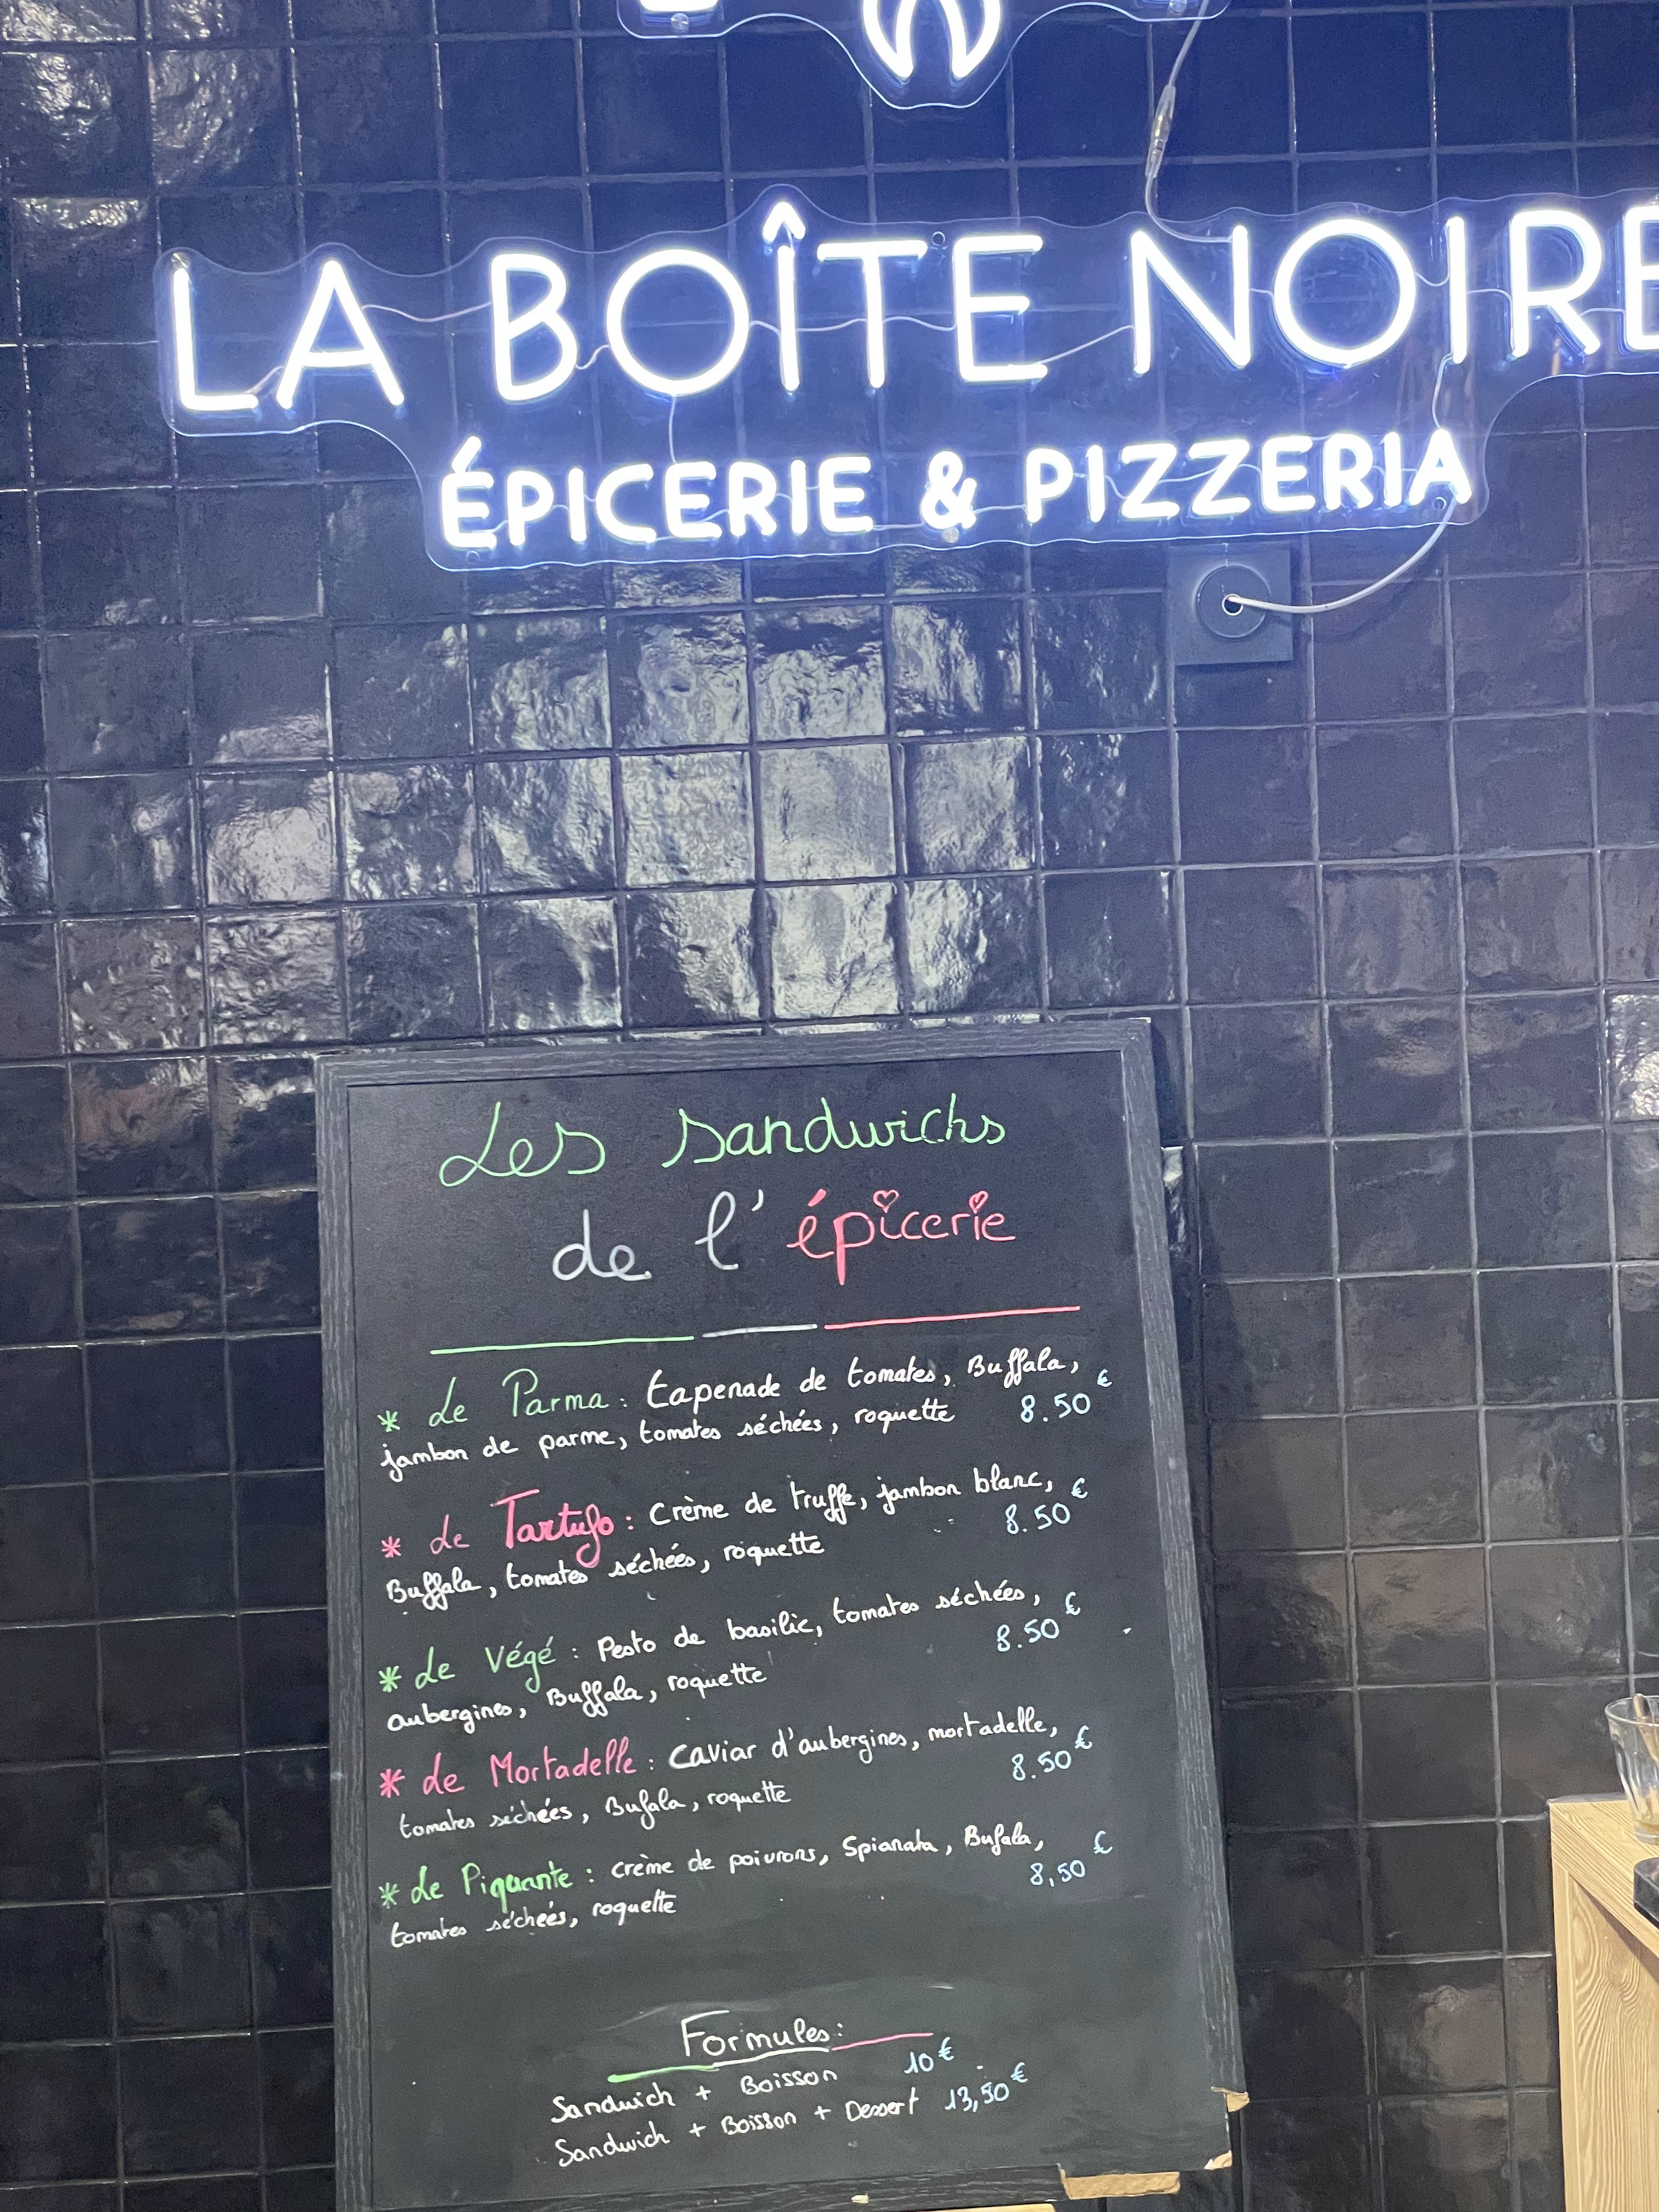 LA BOÎTE NOIRE
ÉPICERIE & PIZZERIA
Les sandwichs
de l'épicerie
* Le Parma : tapenade de tomates, Buffala,
jambon de parme, tomates séchées, roquette 8.50 €
* Le Tartufo : Crème de truffe, jambon blanc,
Buffala, tomates séchées, roquette 8.50 €
* Le Végé : Pesto de basilic, tomates séchées,
aubergines, Buffala, roquette 8.50 €
* Le Mortadelle : Caviar d'aubergines, mortadelle,
tomates séchées, Bufala, roquette 8.50 €
* Le Piquante : crème de poivrons, Spianata, Bufala,
tomates séchées, roquette 8,50 €
Formules :
Sandwich + Boisson 10 €
Sandwich + Boisson + Dessert 13,50 €